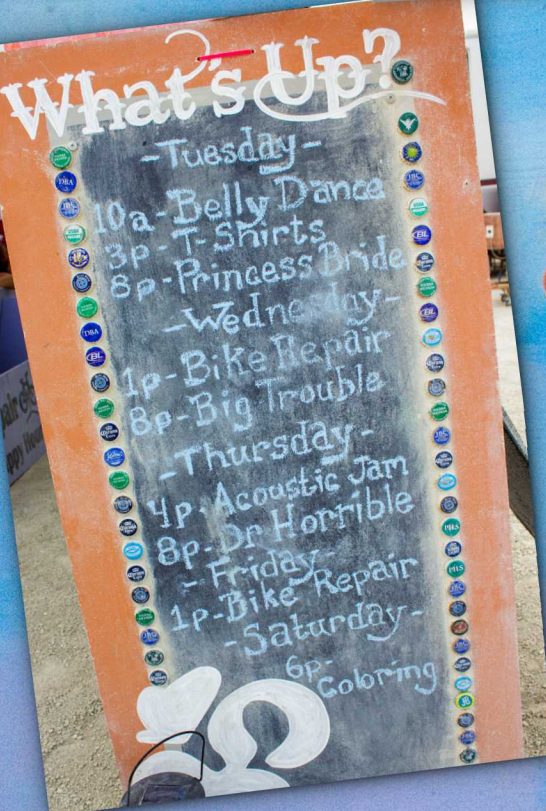 What's Up?
-Tuesday-
10a-Belly Dance
3p T-Shirts
8p-Princess Bride
-Wednesday-
1p-Bike Repair
8p-Big Trouble
-Thursday-
4p. Acoustic Jam
8p-Dr Horrible
-Friday-
1p-Bike Repair
-Saturday-
6p-
Coloring